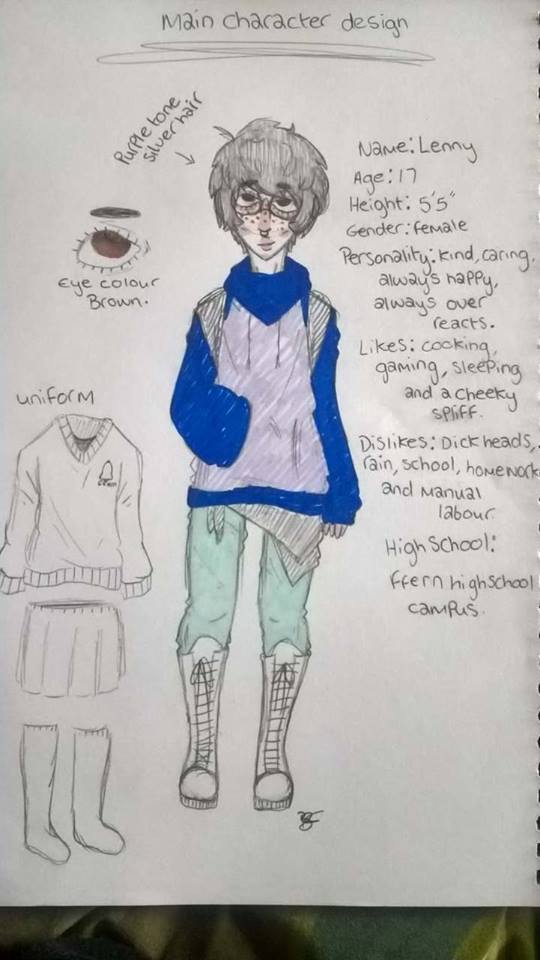 Main character design
Purple tone
silver hair
Name: Lenny
Age: 17
Height: 5'5"
Gender: female
Personality: kind, caring,
always happy,
always over
reacts.
Eye colour
Brown.
Likes: cooking,
gaming, sleeping
and a cheeky
spliff.
uniform
Dislikes: Dick heads,
rain, school, homework
and manual
labour.
High School:
Ffern highschool
campus.